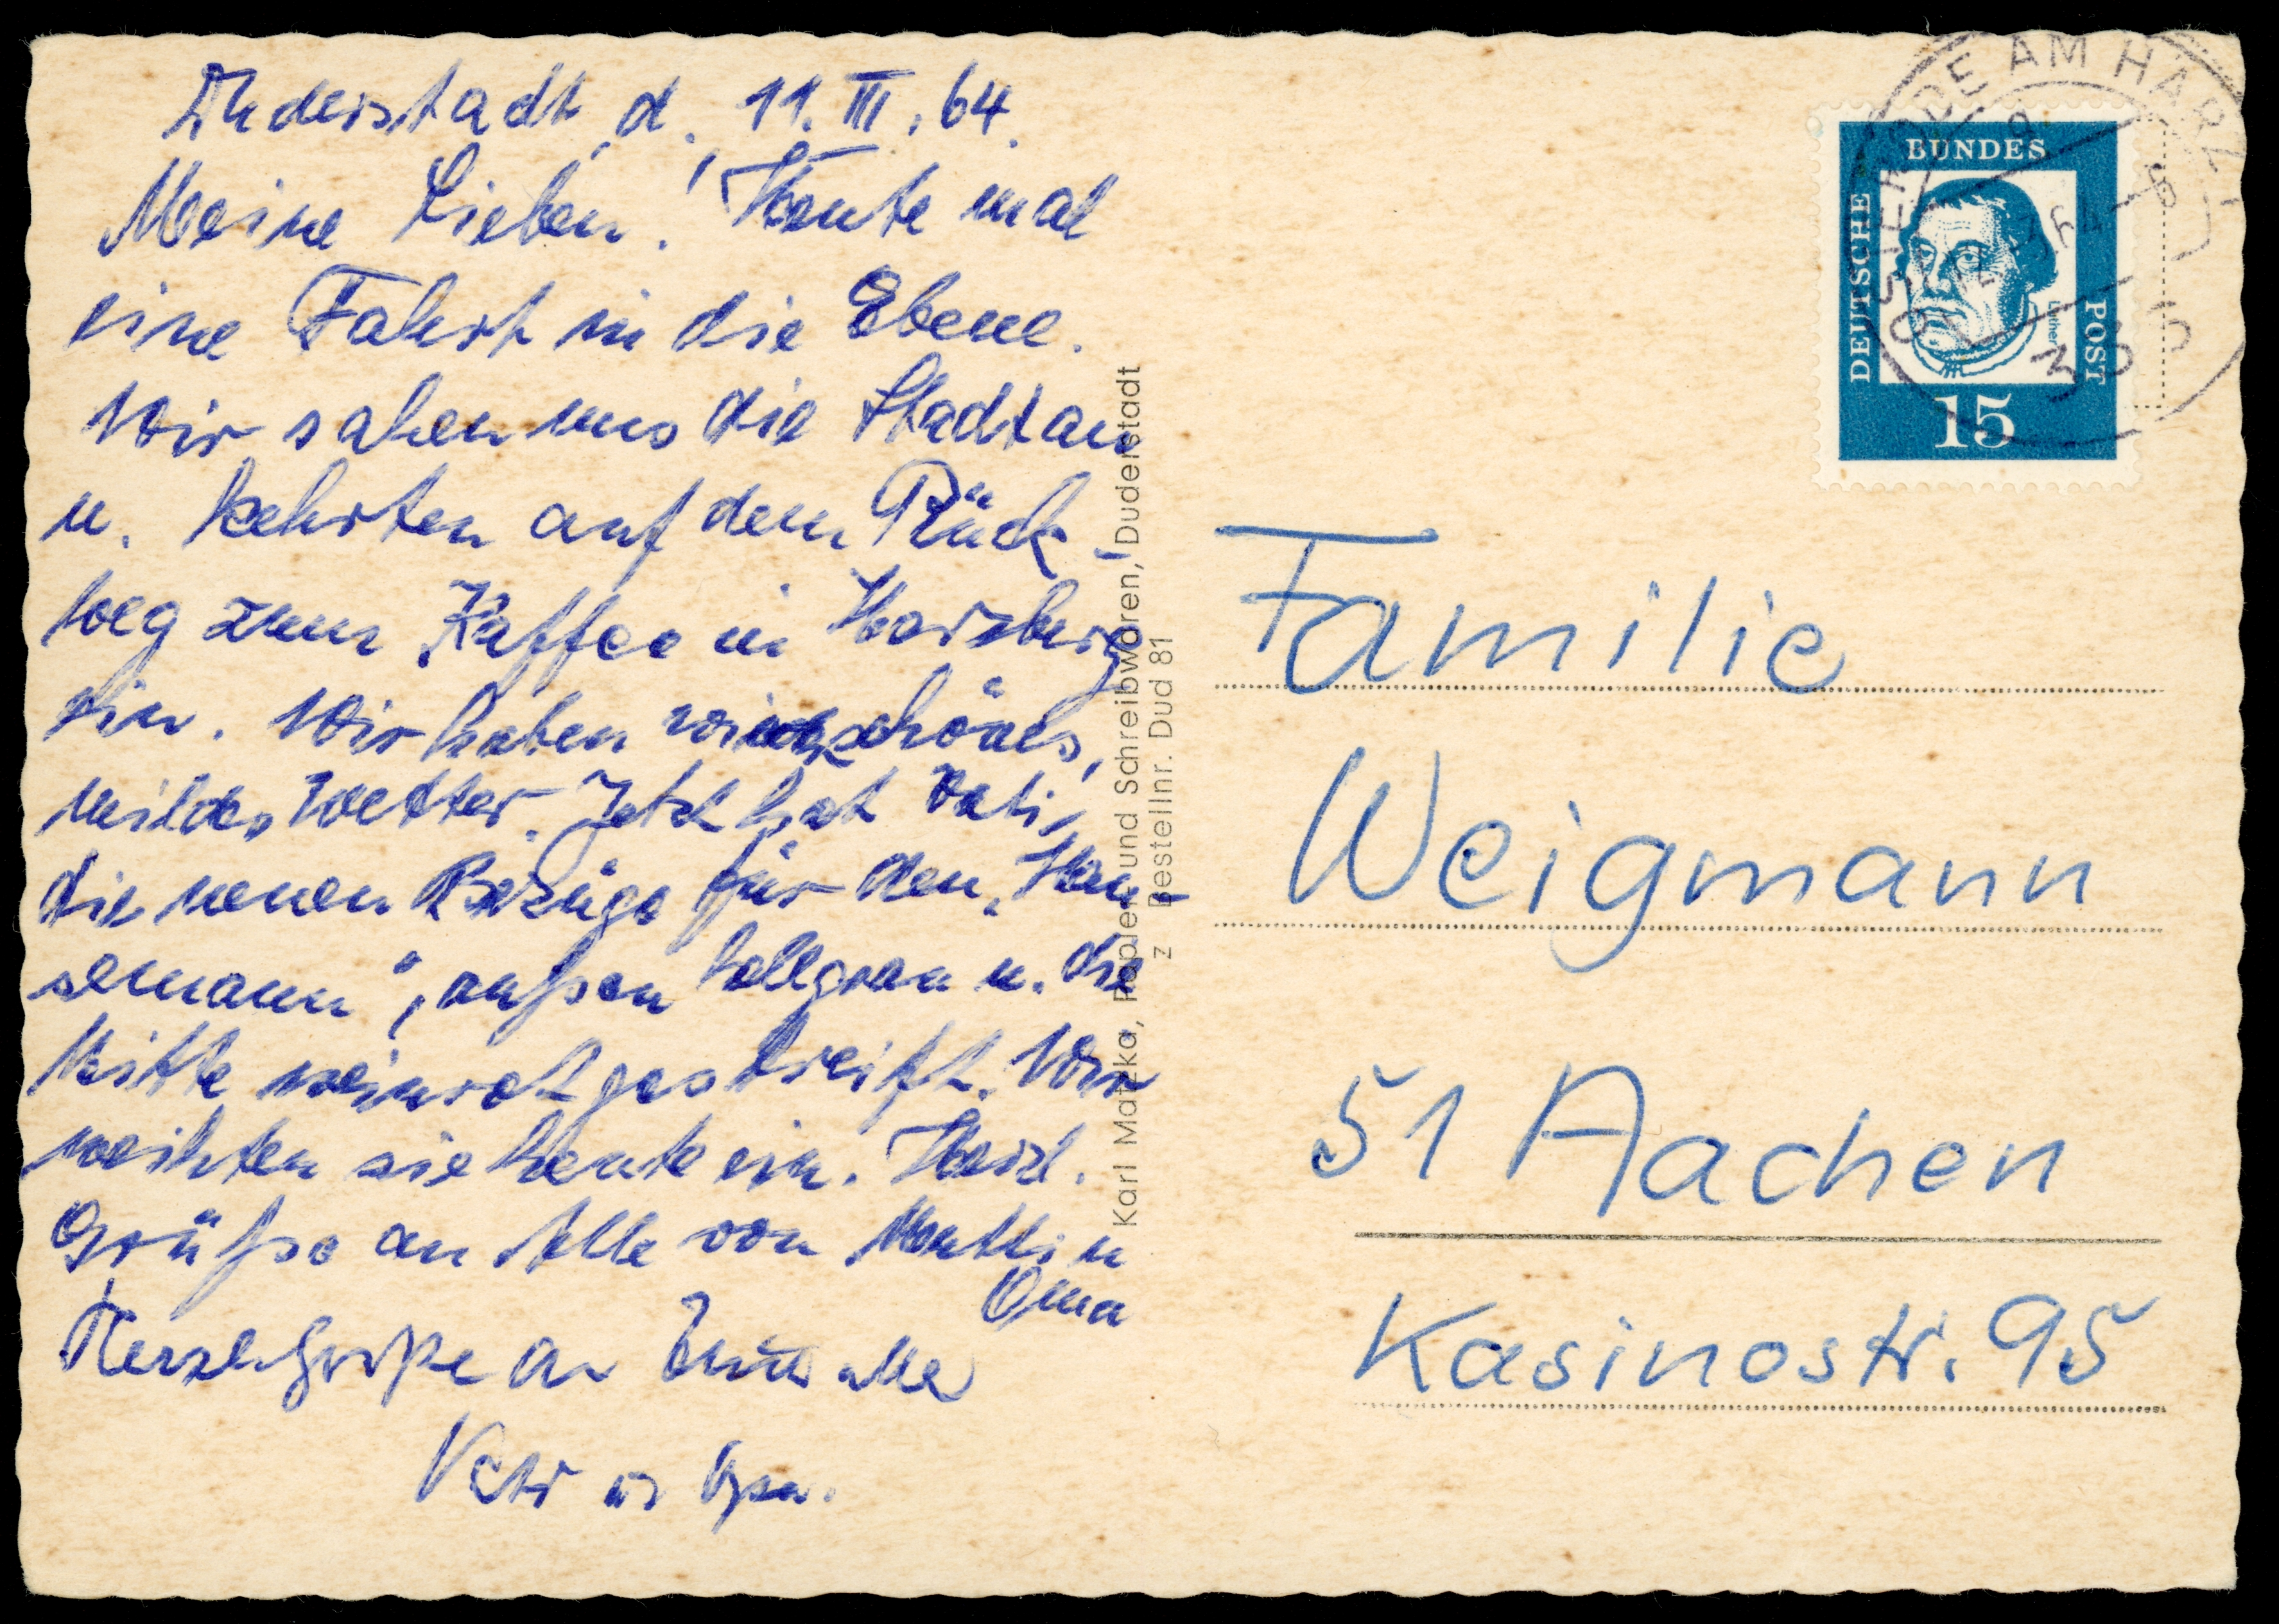 Duderstadt, d. 11. III. 64.
Meine Lieben! Heute mal
eine Fahrt in die Ebene.
Wir sahen uns die Stadt an
u. kehrten auf dem Rück-
weg zum Kaffee in Harzburg
ein. Wir haben schönes,
mildes Wetter. Jetzt hat Vati
die neuen Bezüge für den „Han-
semann“, außen hellgrau u. die
Mitte weinrot gestreift. Wir
weihten sie heute ein. Herzl.
Grüße an Alle von Mutti u
Oma
Herzl. Grüße an
Vater u Opa.
Karl Matzka, Papier und Schreibwaren, Duderstadt
z Bestellnr. Dud 81
OSTERODE AM HARZ
DEUTSCHE
BUNDES
POST
Luther
15
Familie
Weigmann
51 Aachen
Kasinostr. 95